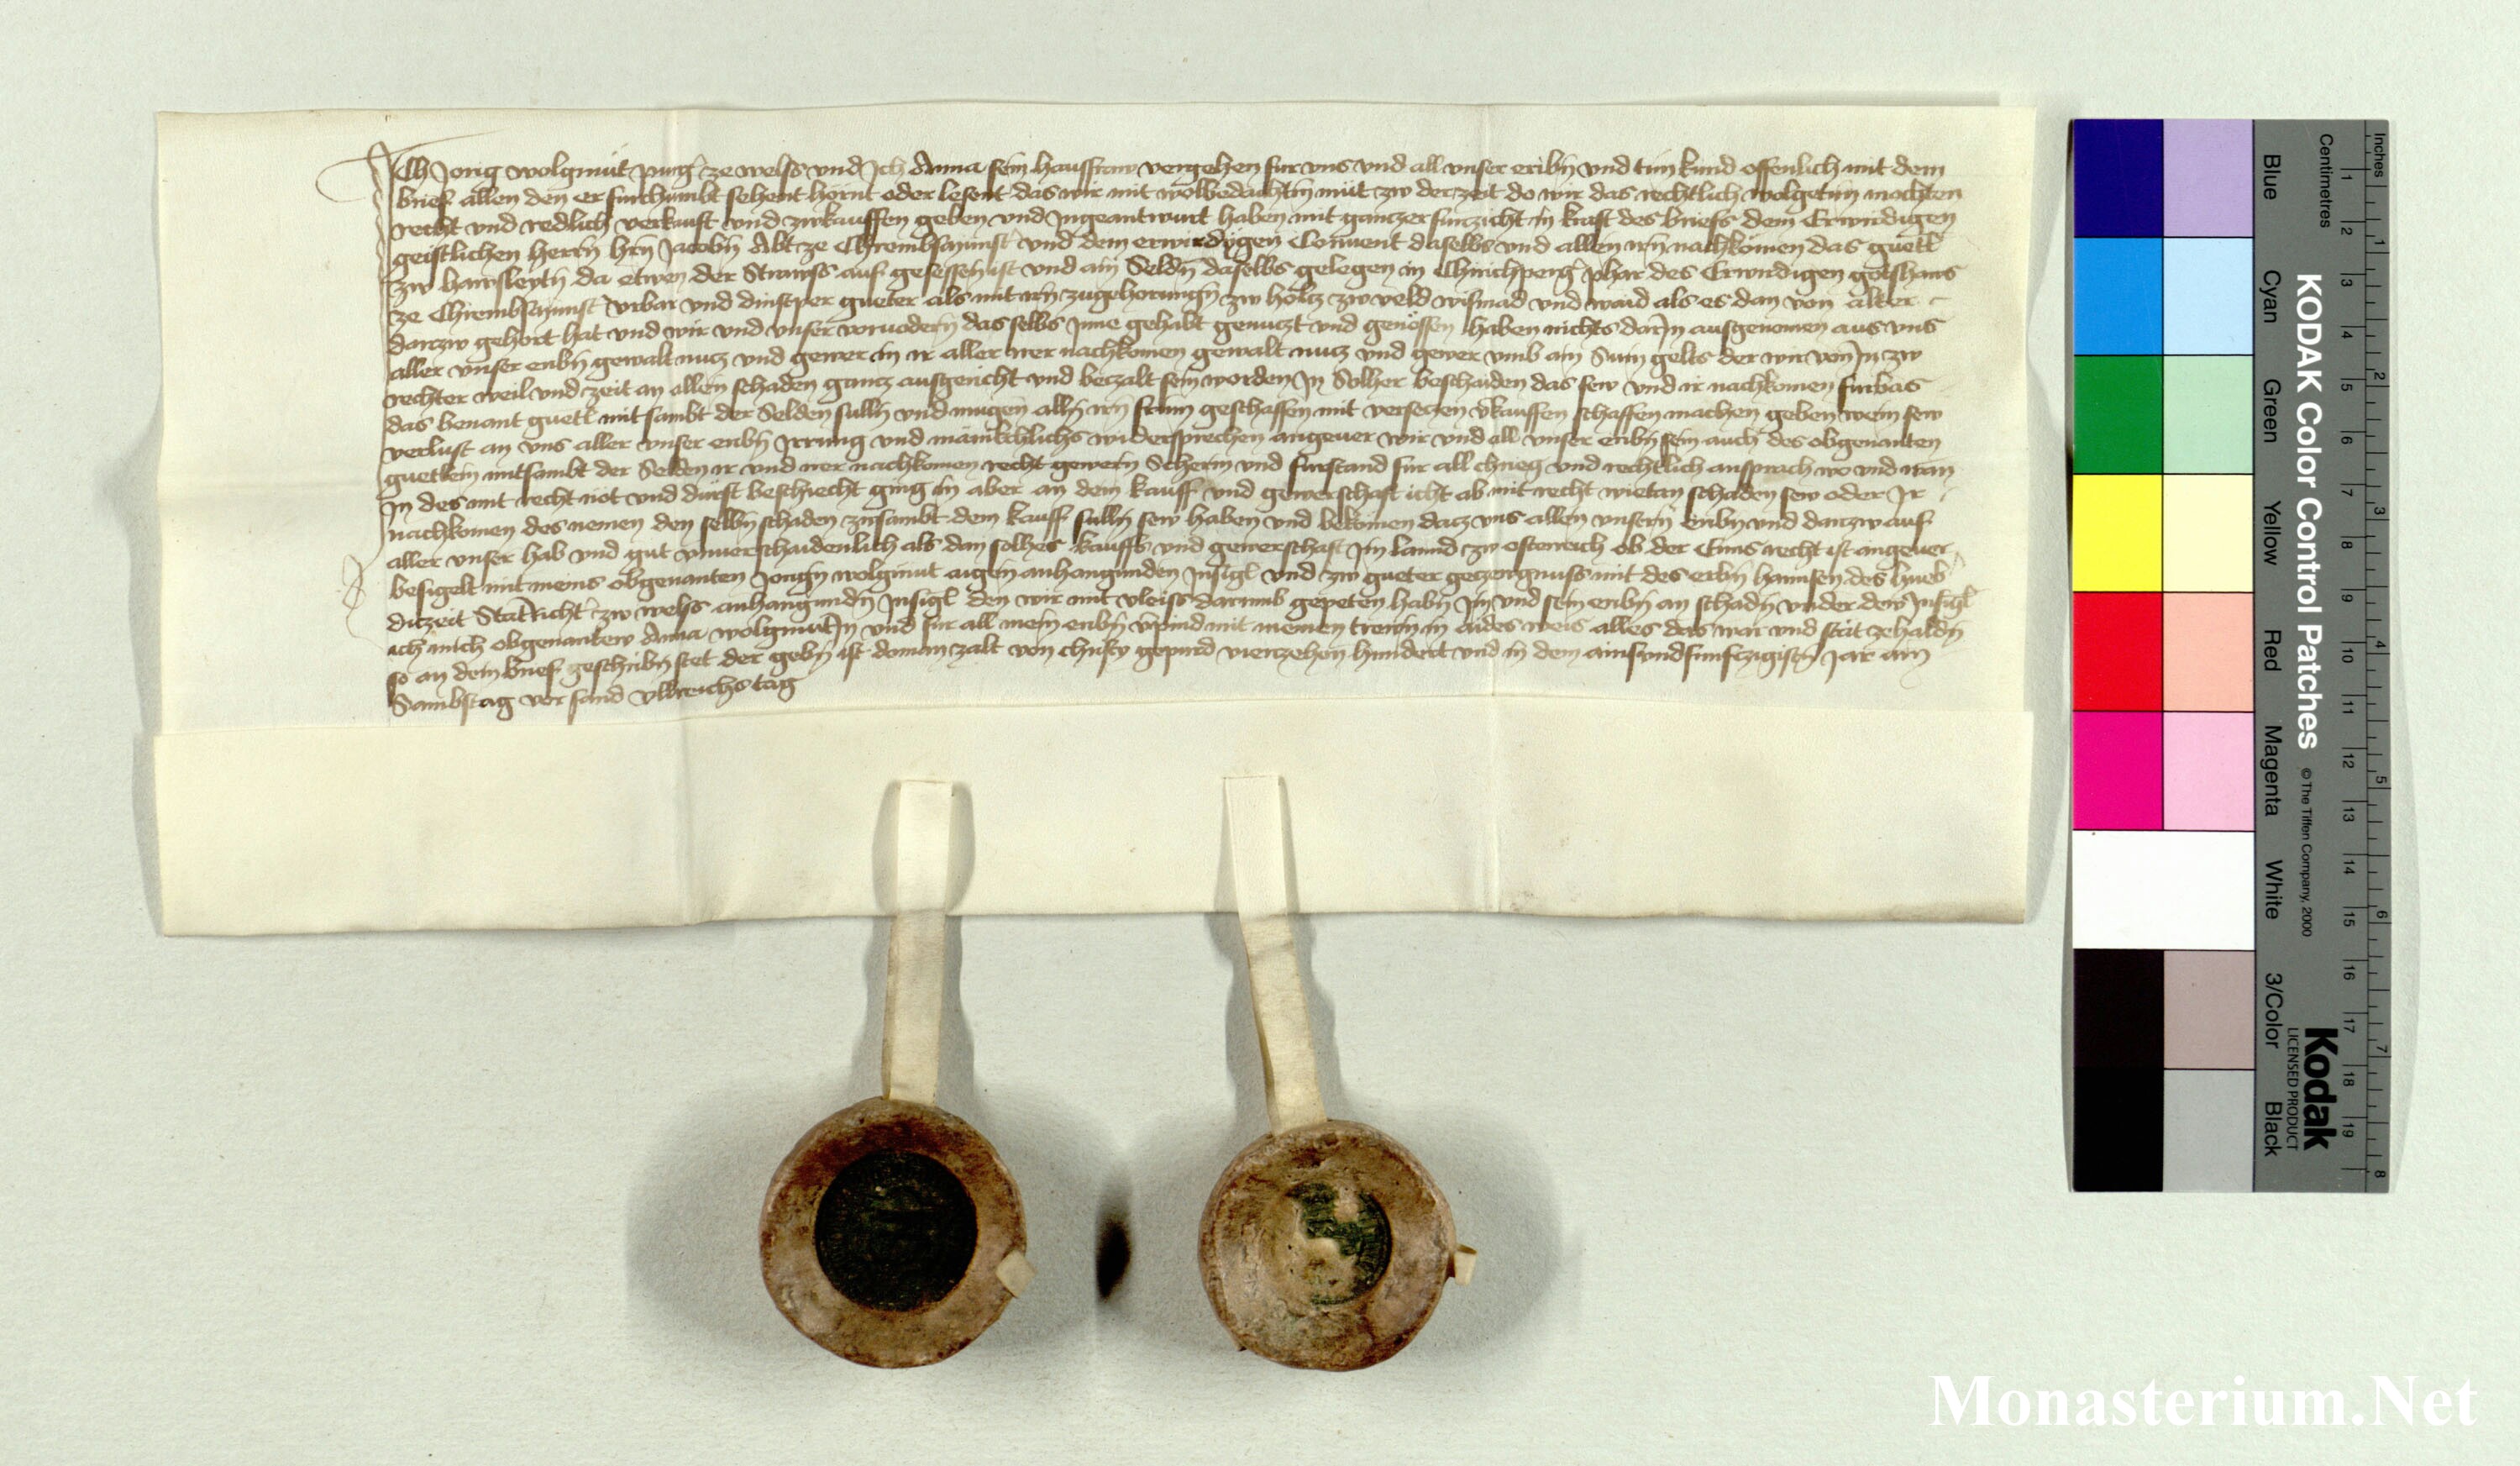 Ich Jorig wolgmut purg̃ ze welss und Ich Anna sein hausfraw vergehen fur uns und all unser eribñ und tun kund offenlich mit dem
brief allen den er furchumbt sehent hornt oder lesent das wir mit wolbedachtm mut zw der zeit do wir das rechtlich wolgetun mochten
recht und redlich verkauft und zwkauffen geben und Ingeantwurt haben mit ganczer furzicht in kraft des briefs dem Erwirdigen
geistlichen herrñ hrñ Jacobñ Abt ze Chrembsmunst̃ und dem erwirdygen Convent daselbs und allen irñ nachkomen das guetl
zw da etwen der Strawss auf gesessen ist und ain Seldñ daselbs gelegen in Chirichperg̃ phar des Erwirdigen gotshaws
ze Chrembsmunst̃ Urbar und dinstper gueter als mit irñ zugehorungñ zw holcz zw veld wismad und waid als es dan von alter
darzw gehort hat und wir und unser vorvodern daselbs Inne gehabt genuczt und genossen haben nichts darin ausgenomen aus uns
aller unser eribñ gewalt nucz und gewer in ir aller irer nachkomen gewalt nucz und gewer umb ain Sum gelts der wir von In zw
rechter weil und zeit an allen schaden gancz ausgericht und beczalt sein worden In Solher beschaiden das sew und ir nachkomen furbas
das benant guetl mit sambt der Selden sulln und mugen alln irñ frum geschaffen mit verseczen v̇kauffen schaffen machen geben wem sew
verlust an uns aller unser eribñ Irrung und mänikchlichs widersprechen angever wir und all unser eribñ sein auch des obgenanten
guetlein mitsambt der Selden ir und irer nachkomen recht gewern Scherm und furstand fur all chrieg und rechtlich ansprach wo und wan
In des mit recht not und durft beschiecht ging in aber an dem kauff und gewerschaft icht ab mit recht wietan schaden sew oder Ir
nachkomen des nemen den selbñ schaden zusambt dem kauff sulln sew haben und bekomen dacz uns allen unsern eribñ und darzw auf
aller unser hab und gut unverschaidenlich als dan solhes kauffs und gewerschaft Im lannd zw osterreich ob der Enns recht ist angever
besigelt mit meins obgenanten Jorign wolgmut aigen anhangunden Insigl und zw gueter geczewgnuss mit des erbñ hannsen des
diczeit Statricht̃ zw welss anhangundñ Insigl den wir mit vleiss darumb gepeten habñ Im und sein eribñ an schadñ under dew Insigl
ich mich obgenantew Anna wolgmutin und fur all mein eribñ vpind mit meinen trewn in aides weis alles das war und stät zehaldñ
so an dem brief geschribñ stet der gebñ ist doman zalt von christy gepurd vierzehen hundert und in dem ainsundfunfczigistñ Jar am
Sambstag vor sand ullreichs tag
Inches
Centimetres
1 2 3 4 5 6 7 8 9 10 11 12 13 14 15 16 17 18 19
1 2 3 4 5 6 7 8
KODAK Color Control Patches
© The Tiffen Company, 2000
Kodak
LICENSED PRODUCT
Blue
Cyan
Green
Yellow
Red
Magenta
White
3/Color
Black
Monasterium.Net